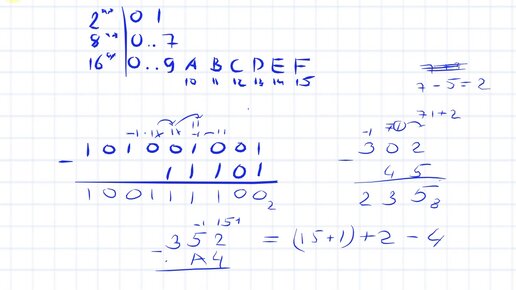 2 | 0 1
8 | 0..7
16 | 0..9 A B C D E F
10 11 12 13 14 15
7 - 5 = 2
7 1 + 2
1 0 1 0 0 1 0 0 1
- 1 1 1 0 1
1 0 0 1 1 1 1 0 0 2
-1 7
- 3 0 2
4 5
2 3 5 8
-1 15+
- 3 5 2 = (15+1)+2-4
. A 4